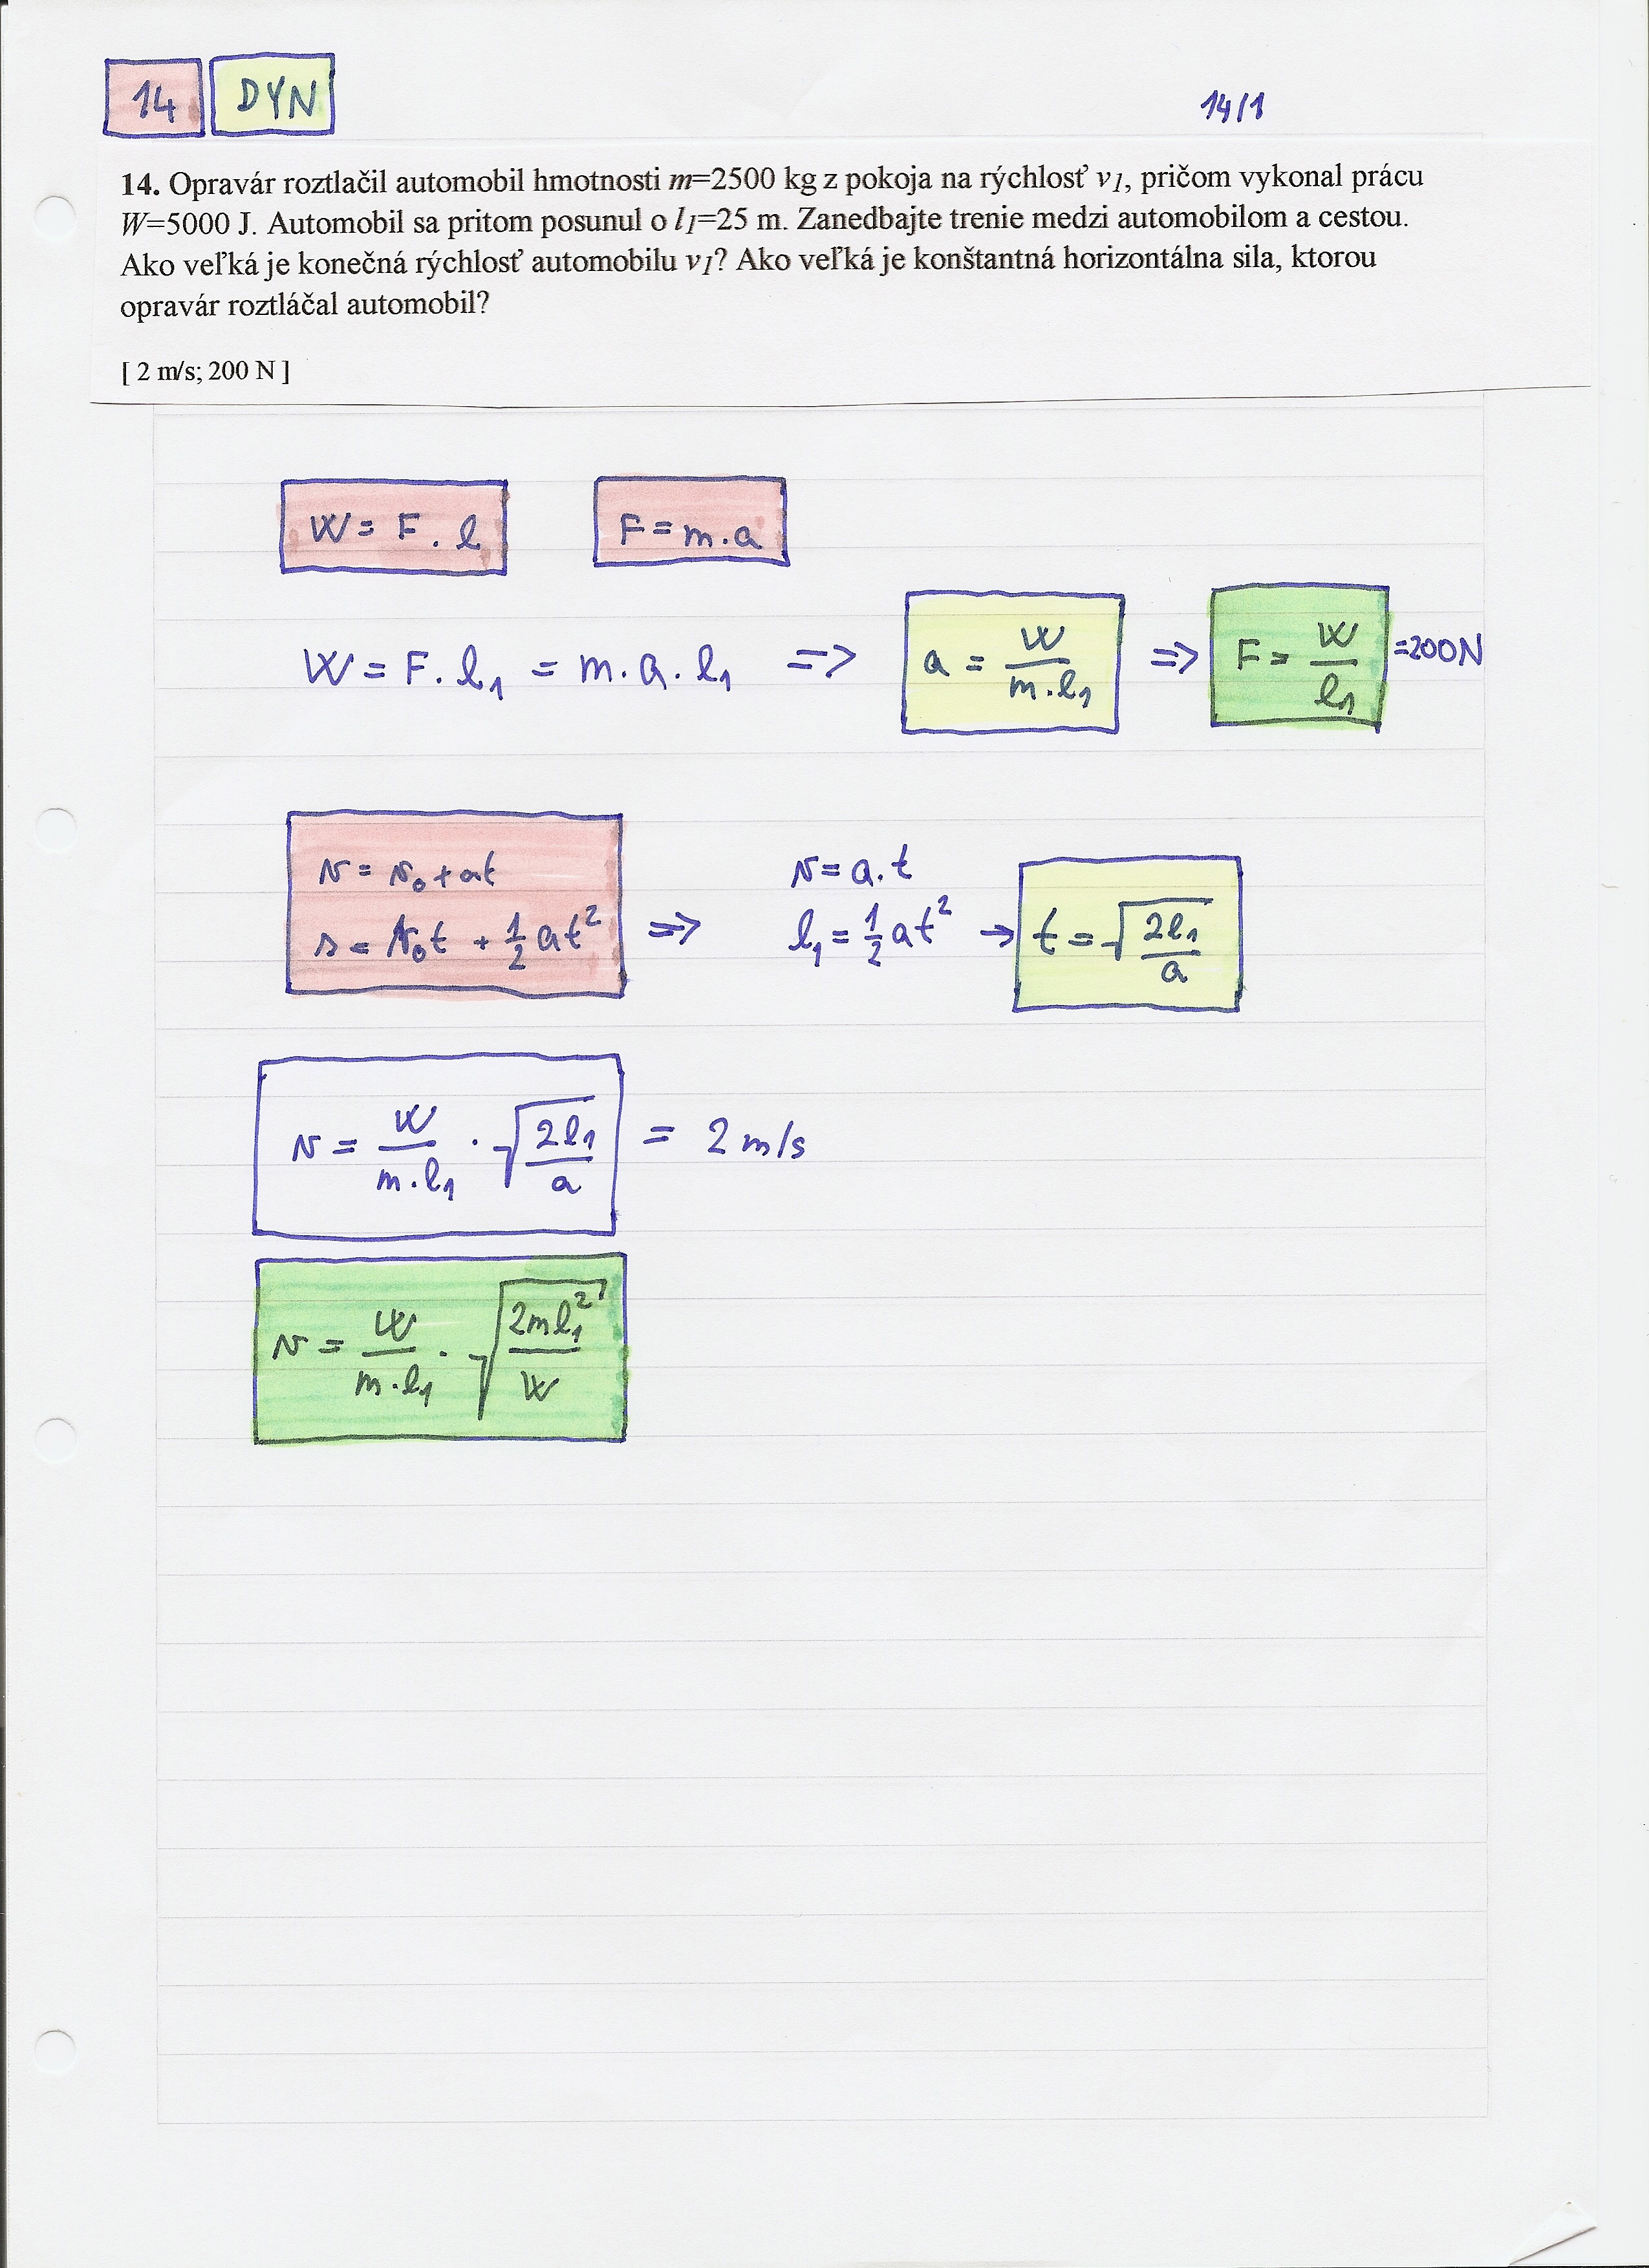 14 DYN 14/1
14. Opravár roztlačil automobil hmotnosti m=2500 kg z pokoja na rýchlosť v₁, pričom vykonal prácu
W=5000 J. Automobil sa pritom posunul o l₁=25 m. Zanedbajte trenie medzi automobilom a cestou.
Ako veľká je konečná rýchlosť automobilu v₁? Ako veľká je konštantná horizontálna sila, ktorou
opravár roztláčal automobil?
[ 2 m/s; 200 N ]
W = F . l F = m . a
W = F . l₁ = m . a . l₁ => a = W / m . l₁ => F = W / l₁ = 200N
v = v₀ + at
s = v₀t + 1/2 at² =>
v = a . t
l₁ = 1/2 at² → t = √(2l₁ / a)
v = W / m . l₁ . √(2l₁ / a) = 2 m/s
v = W / m . l₁ . √(2ml₁² / W)